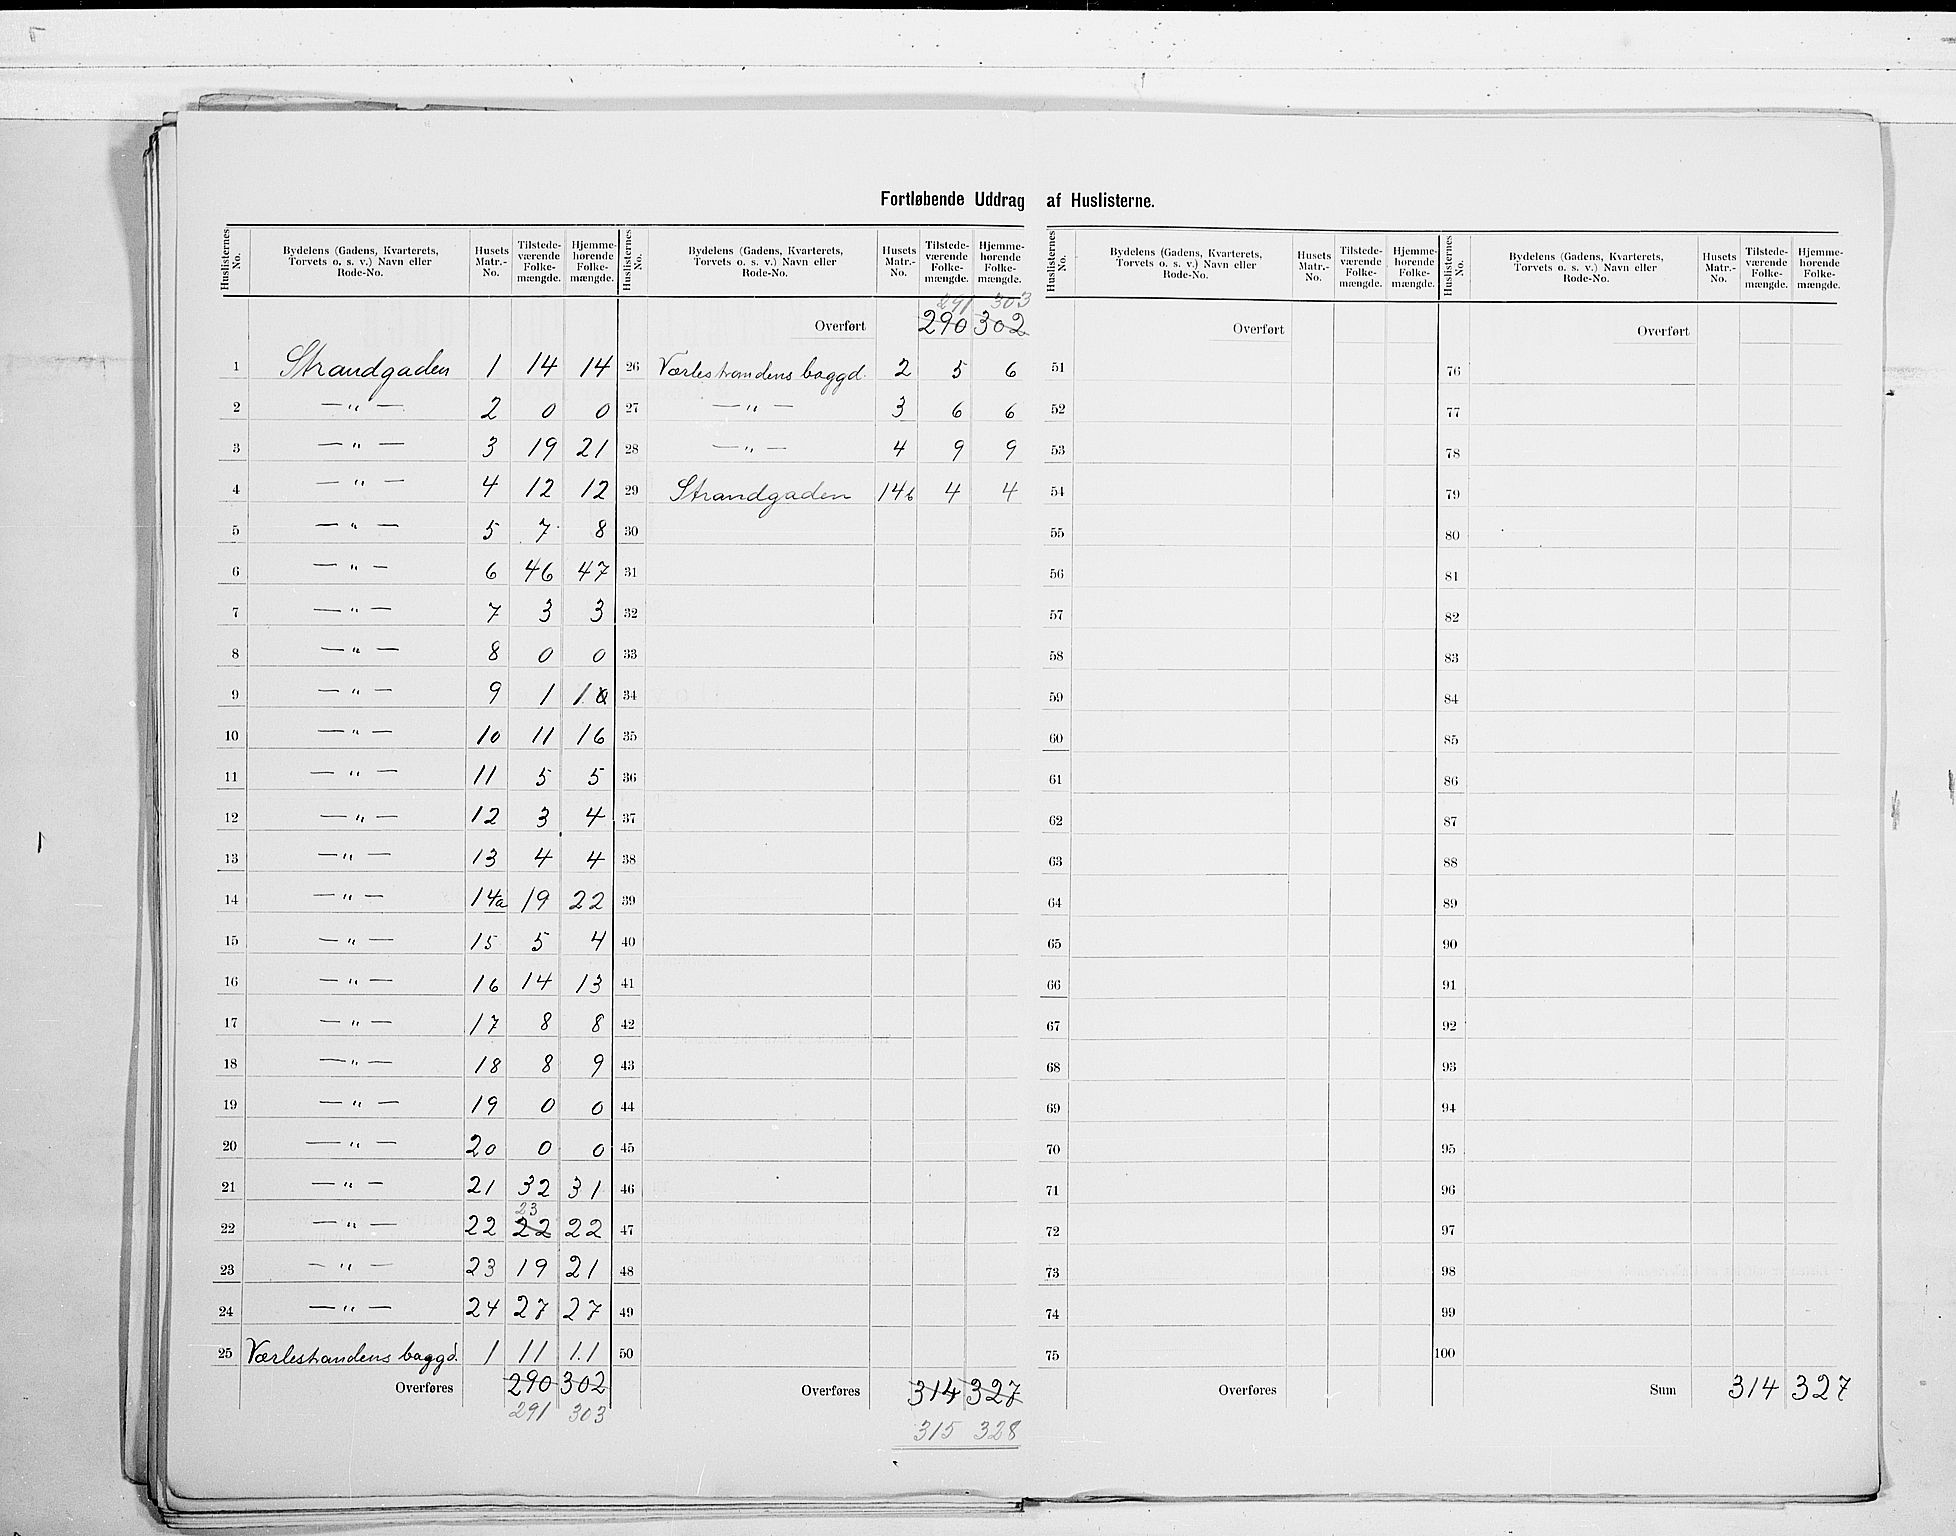 Fortløbende Uddrag af Huslisterne.
Huslisternes No. | Bydelens (Gadens, Kvarterets, Torvets o. s. v.) Navn eller Rode-No. | Husets Matr.-No. | Tilstedeværende Folkemængde. | Hjemmehørende Folkemængde.
1 Strandgaden 1 14 14
2 — " — 2 0 0
3 — " — 3 19 21
4 — " — 4 12 12
5 — " — 5 7 8
6 — " — 6 46 47
7 — " — 7 3 3
8 — " — 8 0 0
9 — " — 9 1 1
10 — " — 10 11 16
11 — " — 11 5 5
12 — " — 12 3 4
13 — " — 13 4 4
14 — " — 14a 19 22
15 — " — 15 5 4
16 — " — 16 14 13
17 — " — 17 8 8
18 — " — 18 8 9
19 — " — 19 0 0
20 — " — 20 0 0
21 — " — 21 32 31
23
22 — " — 22 22 22
23 — " — 23 19 21
24 — " — 24 27 27
25 Værlestrandens baggd. 1 11 11
Overføres 290 302
291 303
Huslisternes No. | Bydelens (Gadens, Kvarterets, Torvets o. s. v.) Navn eller Rode-No. | Husets Matr.-No. | Tilstedeværende Folkemængde. | Hjemmehørende Folkemængde.
291 303
Overført 290 302
26 Værlestrandens baggd. 2 5 6
27 — " — 3 6 6
28 — " — 4 9 9
29 Strandgaden 14b 4 4
30
31
32
33
34
35
36
37
38
39
40
41
42
43
44
45
46
47
48
49
50
Overføres 314 327
315 328
Huslisternes No. | Bydelens (Gadens, Kvarterets, Torvets o. s. v.) Navn eller Rode-No. | Husets Matr.-No. | Tilstedeværende Folkemængde. | Hjemmehørende Folkemængde.
Overført
51
52
53
54
55
56
57
58
59
60
61
62
63
64
65
66
67
68
69
70
71
72
73
74
75
Overføres
Huslisternes No. | Bydelens (Gadens, Kvarterets, Torvets o. s. v.) Navn eller Rode-No. | Husets Matr.-No. | Tilstedeværende Folkemængde. | Hjemmehørende Folkemængde.
Overført
76
77
78
79
80
81
82
83
84
85
86
87
88
89
90
91
92
93
94
95
96
97
98
99
100
Sum 314 327